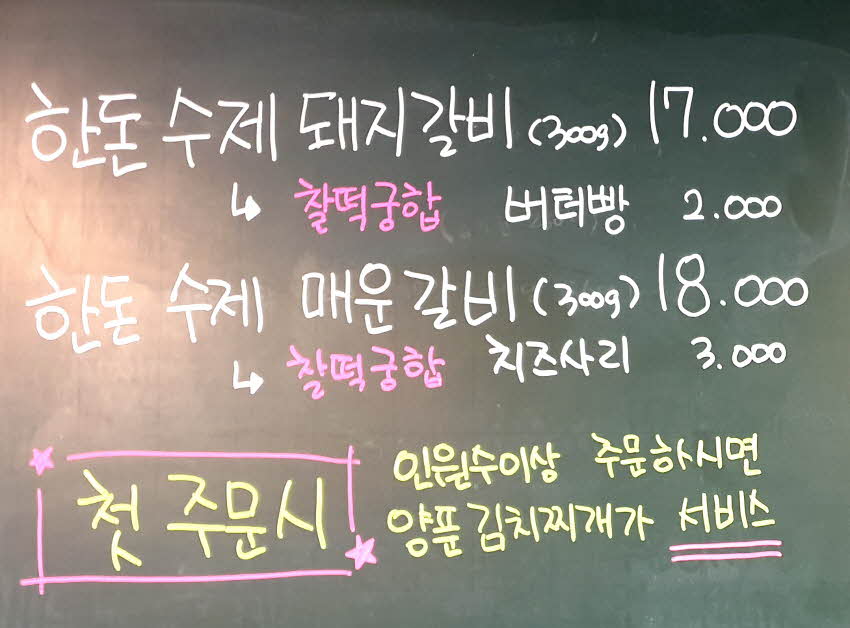 한돈 수제 돼지갈비 (300g) 17.000
↳ 찰떡궁합 버터빵 2.000
한돈 수제 매운갈비 (300g) 18.000
↳ 찰떡궁합 치즈사리 3.000
첫 주문시
인원수이상 주문하시면
양푼김치찌개가 서비스